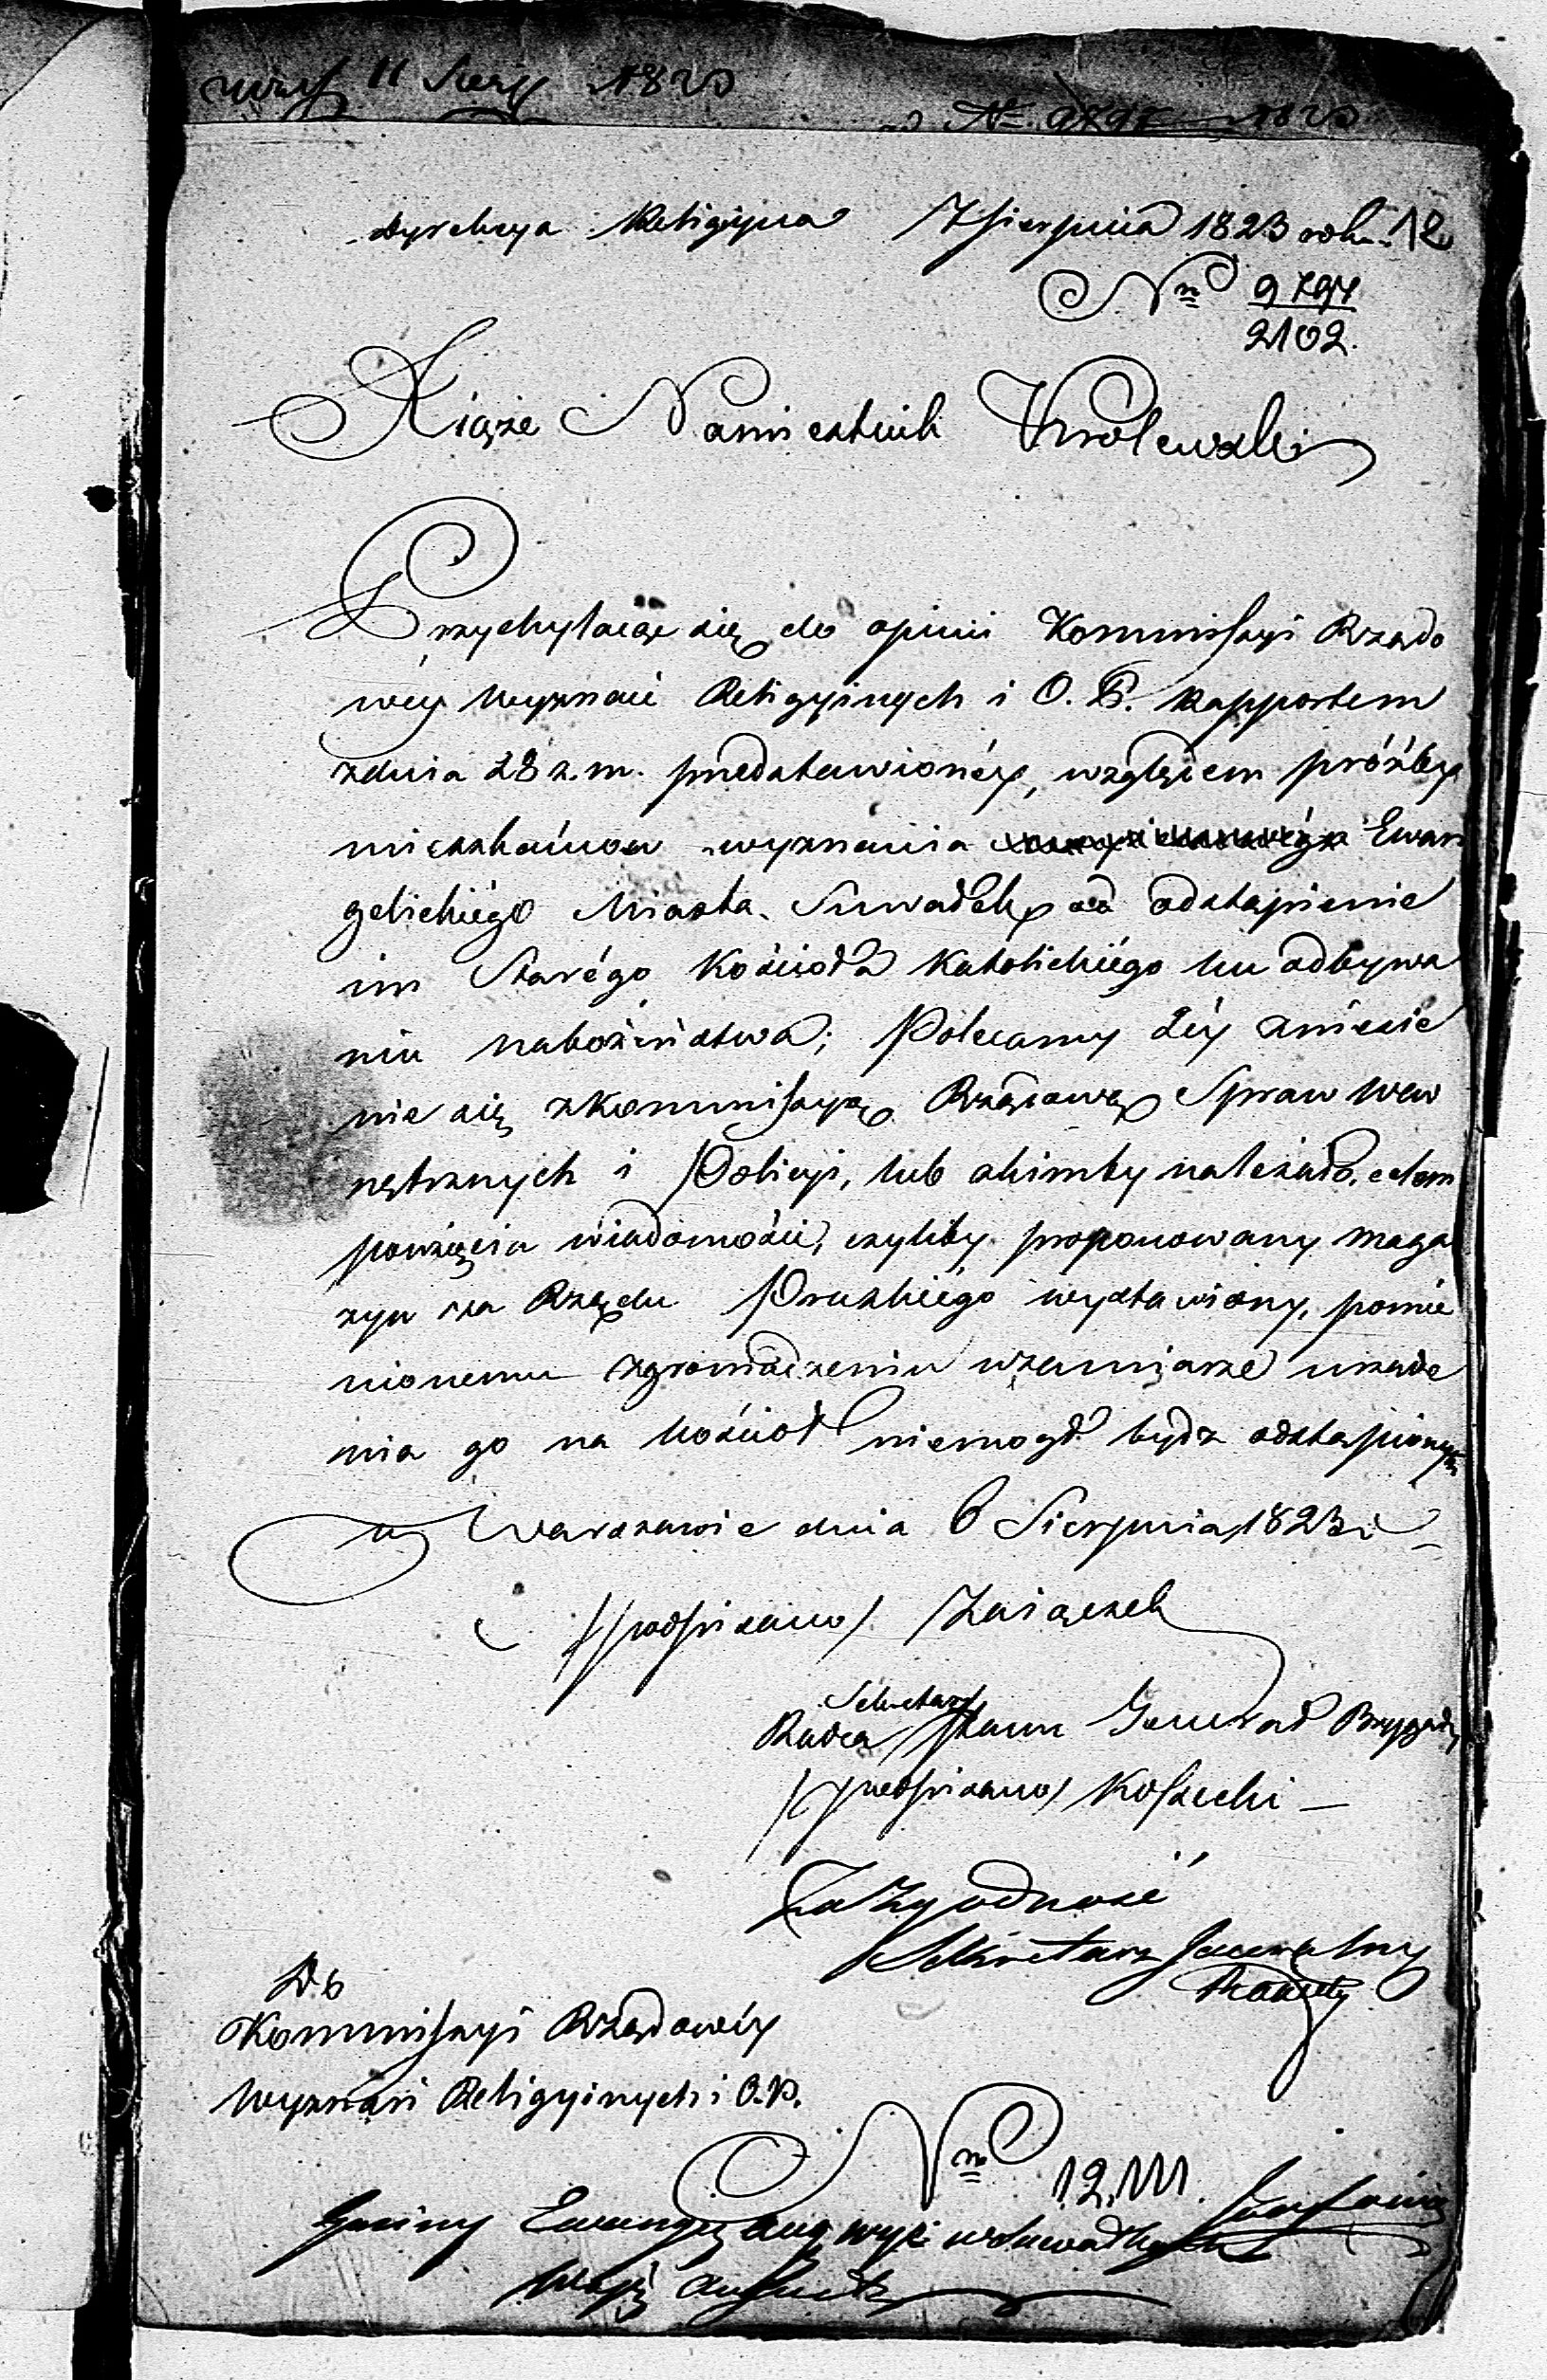 11 Sierp 1823
No 9797 1823
Dyrekcya Religiyna 7 Sierpnia 1823 roku 12
Nro 9797
2102.
Xiąże Namiestnik Krolewski
Przychylaiąc się do opinii Kommissyi Rządo
wéy Wyznań Religyinych i O. P. Rapportem
z dnia 28 z. m. przedstawionéy, względem próźby
mieszkańcow wyznania Ewan
gelickiégo Miasta Suwałk o odstąpienie
im Starégo Kościoła Katolickiégo ku odbywa
niu nabożeństwa; Polecamy Iéy zniesie
nie się z Kommissyą Rządową Spraw Wew
nętrznych i Policyi, lub z kimby należało, celem
powzięcia wiadomości, czyliby proponowany maga
zyn za Rządu Pruskiégo wystawiony, pomie
nionemu zgromadzeniu w zamiarze urządze
nia go na kościoł niemogł bydz odstąpionym
w Warszawie dnia 6 Sierpnia 1823 r
/podpisano/ Zaiączek
Sekretarz
Radca Stanu Generał Brygady
/podpisano/ Kossecki —
Za Zgodność
Sekretarz Jeneralny
Do
Kommissyi Rządowéy
Wyznań Religyinych i O. P.
Nro 12,111.
Gminy Ewangel Aug wyz w Suwałkach
Wojew August